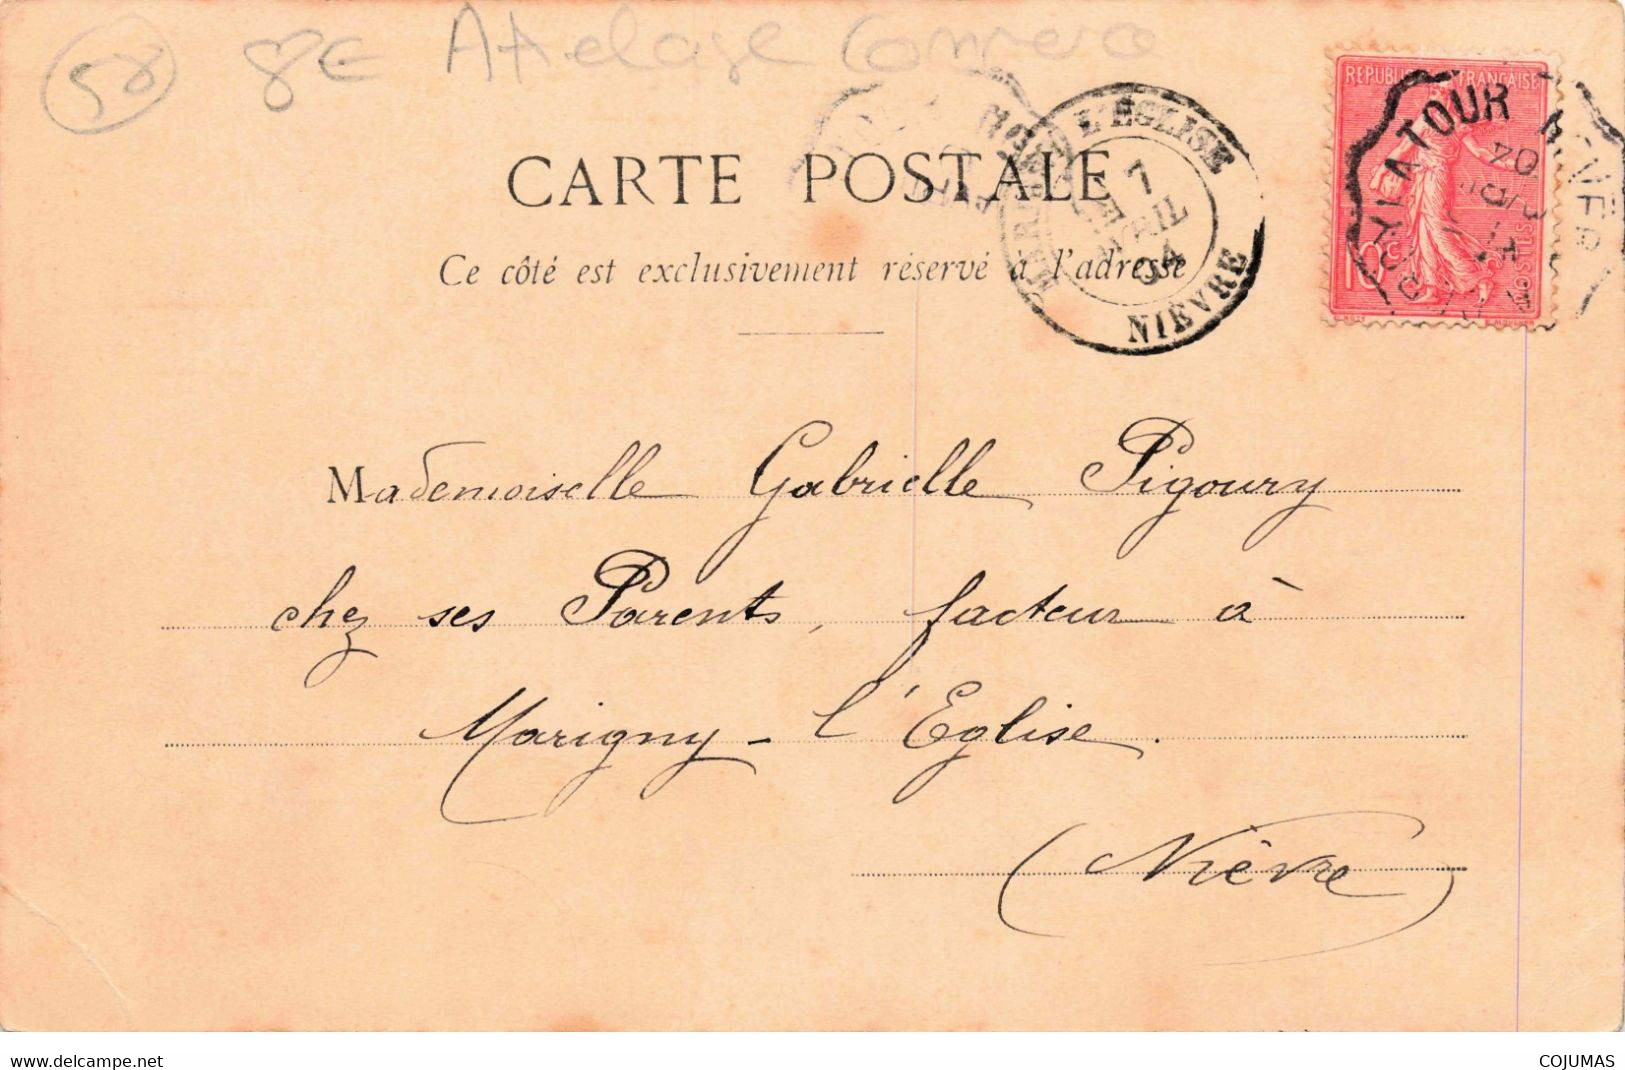 58 8€ Attelage Commerce
CARTE POSTALE
Ce côté est exclusivement réservé à l'adresse
L'ÉGLISE
7
AVRIL
04
NIÈVRE
REPUBLIQUE FRANÇAISE
LATOUR
04
10c
POSTES
Mademoiselle Gabrielle Pigoury
chez ses Parents, facteur à
Marigny-l'Eglise.
(Nièvre)
www.delcampe.net COJUMAS